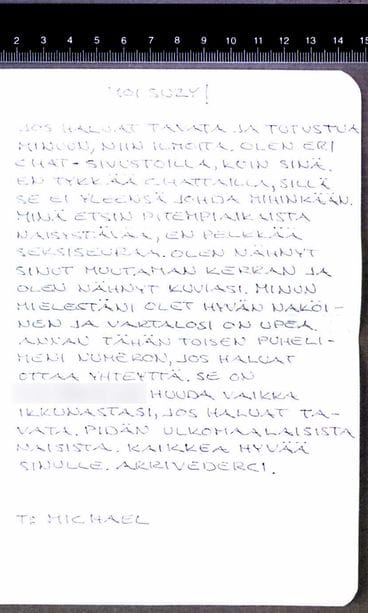 2 3 4 5 6 7 8 9 10 11 12 13 14 15
MOI SUZY!
JOS HALUAT TAVATA JA TUTUSTUA
MINUUN, NIIN ILMOITA. OLEN ERI
CHAT-SIVUSTOILLA, KUIN SINÄ.
EN TYKKÄÄ CHATTAILLA, SILLÄ
SE EI YLEENSÄ JOHDA MIHINKÄÄN.
MINÄ ETSIN PITEMPIAIKAISTA
NAISYSTÄVÄÄ, EN PELKKÄÄ
SEKSISEURAA. OLEN NÄHNYT
SINUT MUUTAMAN KERRAN JA
OLEN NÄHNYT KUVIASI. MINUN
MIELESTÄNI OLET HYVÄN NÄKÖI-
NEN JA VARTALOSI ON UPEA.
ANNAN TÄHÄN TOISEN PUHELI-
MENI NUMERON, JOS HALUAT
OTTAA YHTEYTTÄ. SE ON
HUUDA VAIKKA
IKKUNASTASI, JOS HALUAT TA-
VATA. PIDÄN ULKOMAALAISISTA
NAISISTA. KAIKKEA HYVÄÄ
SINULLE. ARRIVEDERCI.
T: MICHAEL